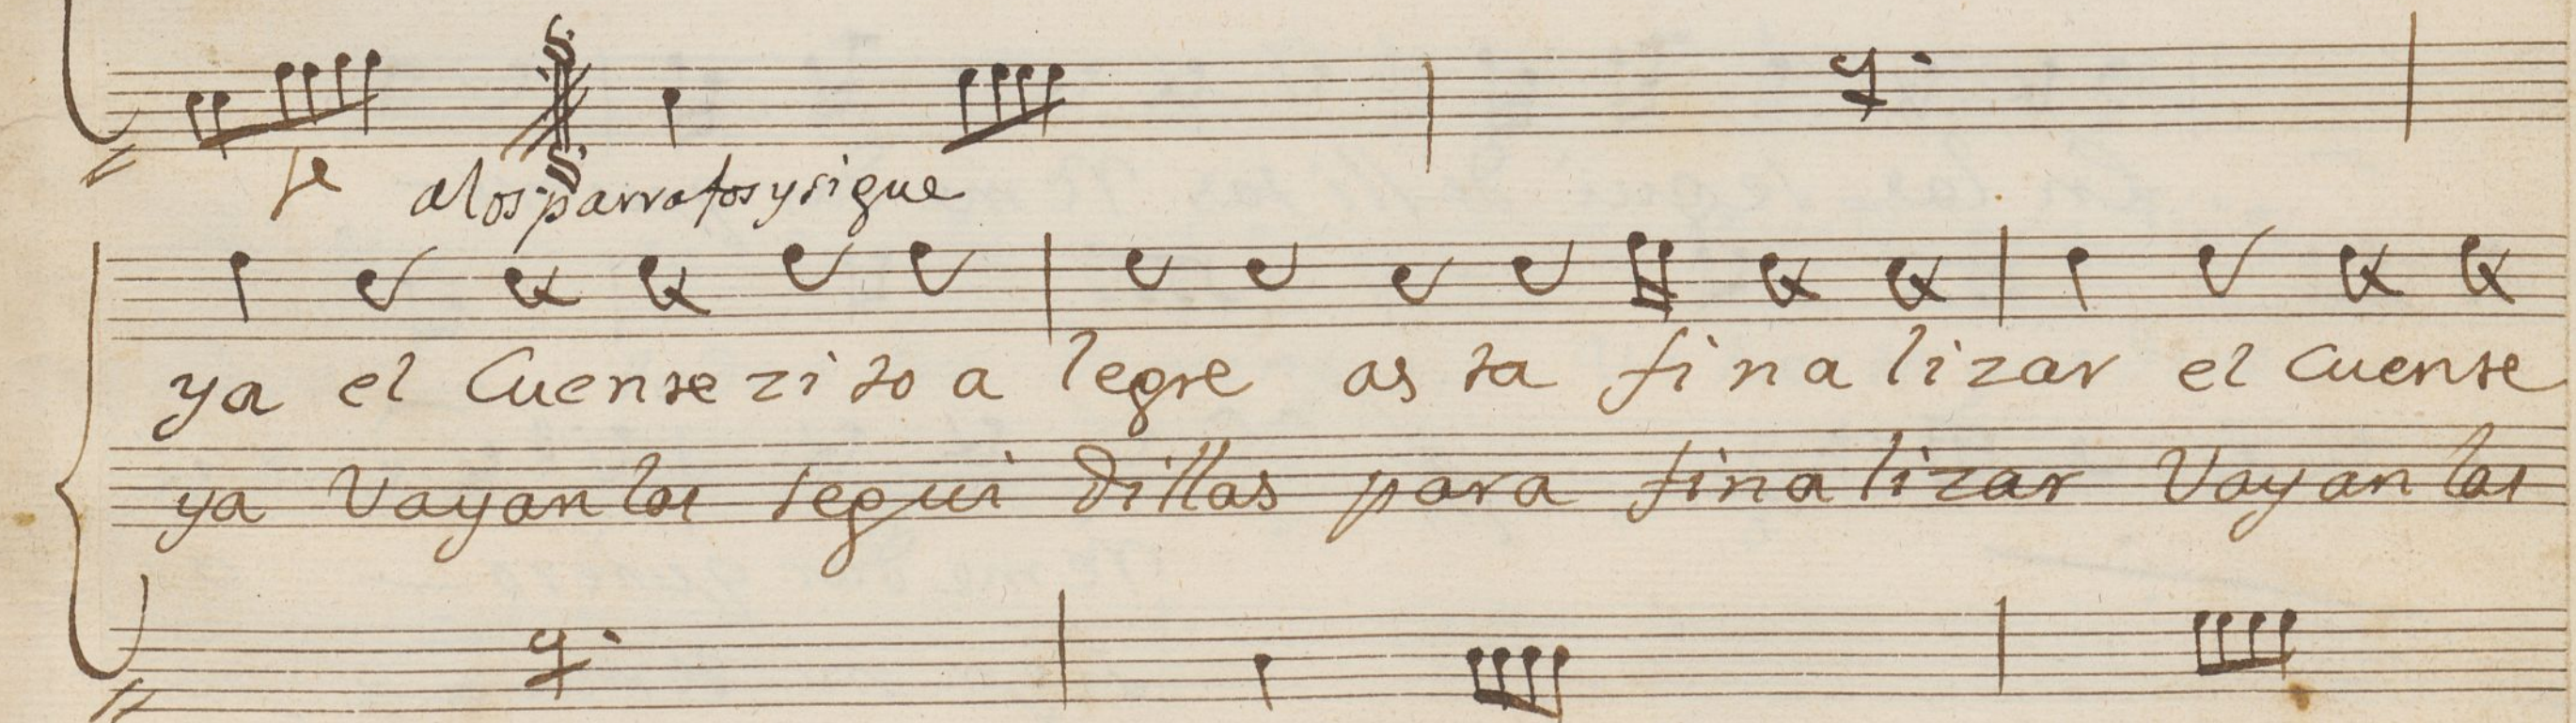 fe
alos parrafos y sigue
ya el Cuentezito a legre as ta finalizar el Cuente
ya Vayan las segui dillas para finalizar Vayan las